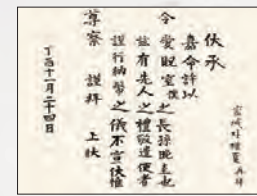 伏承
嘉命許以
令愛貺室僕之長孫
玆有先人之禮敬遣使者
謹行納幣之儀不宣伏惟
尊察 謹拜 上狀
丁酉十一月二十四日
再拜